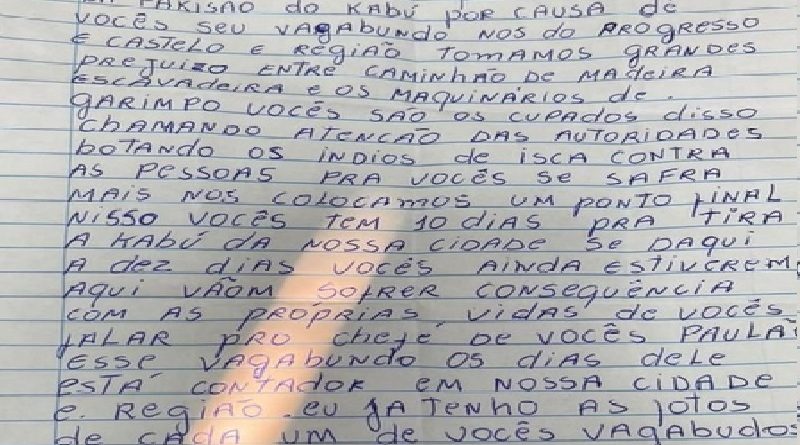 PAKISAO do KABÚ POR CAUSA de
VOCÊS SEU VAGABUNDO NOS dO PROGRESSO
E CASTELO E REGIÃO TOMAMOS GRANDES
PREJUIZO ENTRE CAMINHÃO DE MADEIRA
ESCAVADEIRA E OS MAQUINÁRIOS de.
GARIMPO VOCÊS SÃO OS CUPADOS disso
CHAMANDO ATENCÃO DAS AUTORIDADES
BOTANDO OS ÍNDIOS de ISCA CONTRA
AS PESSOAS PRA VOCÊS SE SAFRA
MAIS NOS COLOCAMOS UM PONTO FINAL
NISSO VOCÊS TEM 10 dIAS PRA TIRA
A KABÚ DA NOSSA CIDADE SE DAQUI
A dEZ dIAS VOCÊS AINDA ESTIVEREM
AQUI VÃOM SOFRER CONSEQUÊNCIA
COM AS PRÓPRIAS VIDAS de VOCÊS.
FALAR PRO CHEFE DE VOCÊS PAULÃO
ESSE VAGABUNDO OS DIAS DELE
ESTÁ CONTADOR EM NOSSA CIDADE
E. REGIÃO. EU JA TENHO AS FOTOS
de CADA UM de VOCÊS VAGABUDOS